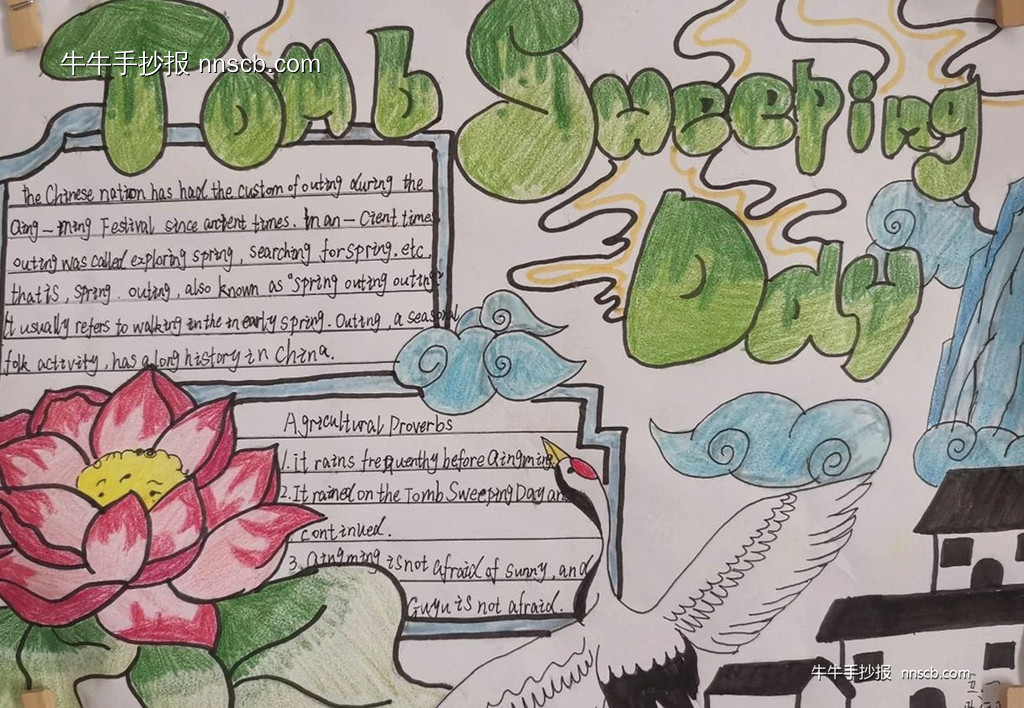 Tomb Sweeping
Day
牛牛手抄报 nnscb.com
the Chinese nation has had the custom of outing during the
Qing-ming Festival since ancient times. In an-Cient times
outing was called exploring spring, searching for spring, etc.
that is, spring. outing, also known as "spring outing outing"
It usually refers to walking in the in early spring. Outing, a seasonal
folk activity, has a long history in China.
Agricultural Proverbs
1. it rains frequenthy before Qingming
2. It rained on the Tomb Sweeping Day an
continued.
3. Qingming is not afraid of sunny, and
Guyu is not afraid.
牛牛手抄报 nnscb.com